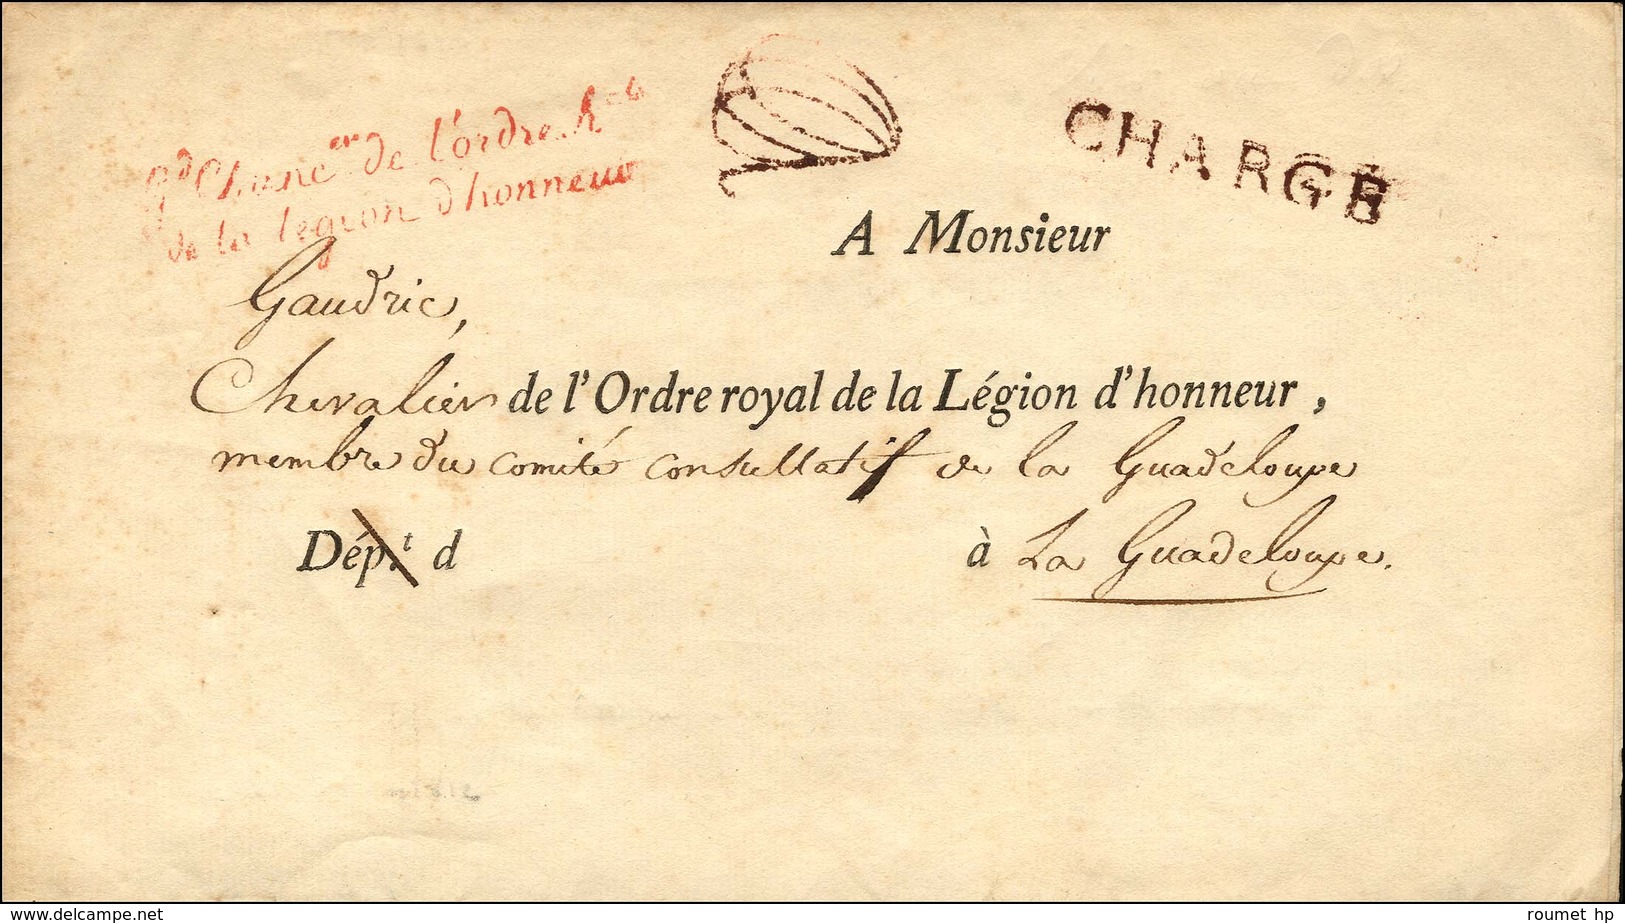 Gd Chancer de l'ordre Ral
de la légion d'honneur
CHARGÉ
A Monsieur
Gaudric,
Chevalier de l'Ordre royal de la Légion d'honneur,
membre du comité consultatif de la Guadeloupe
Dépt d à La Guadeloupe.
www.delcampe.net
roumet hp